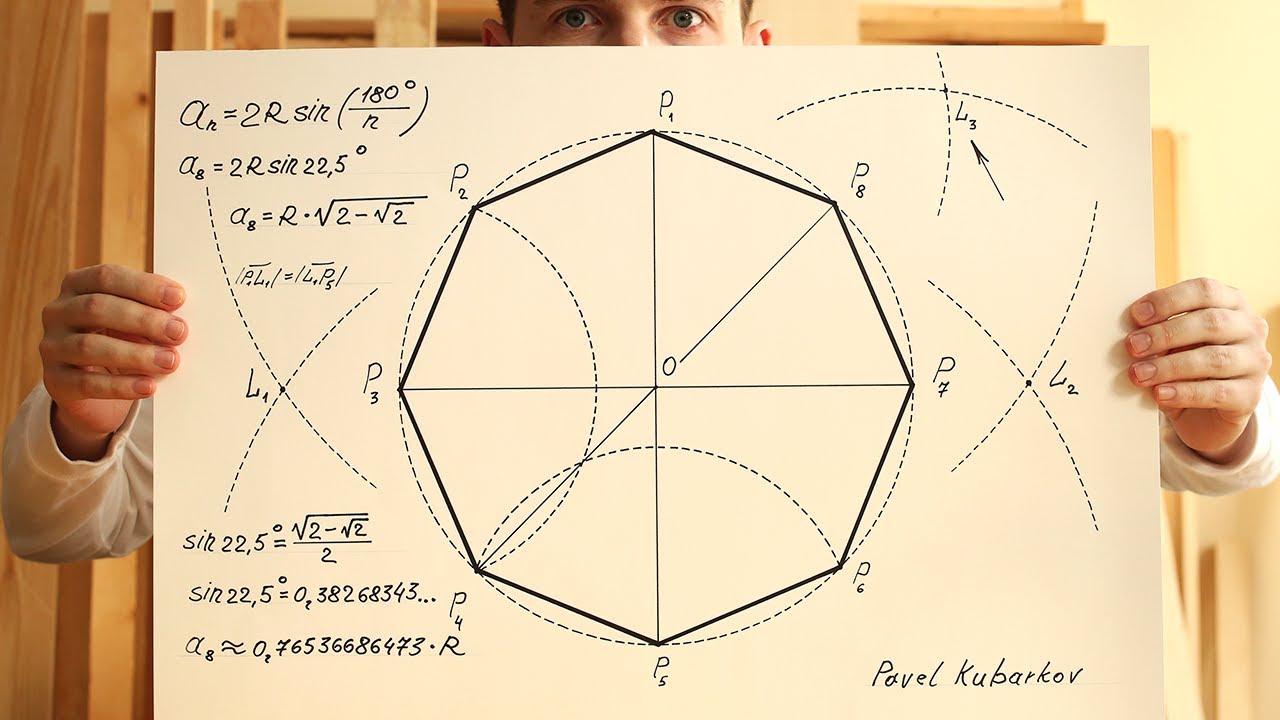 aₙ = 2R sin (180°/n)
a₈ = 2R sin 22,5°
a₈ = R · √(2 − √2)
|P₁L₁| = |L₁P₅|
sin 22,5° = √(2 − √2)/2
sin 22,5° = 0,38268343...
a₈ ≈ 0,76536686473 · R
P₁
P₂
P₈
L₃
O
L₁
P₃
P₇
L₂
P₄
P₆
P₅
Pavel Kubarkov